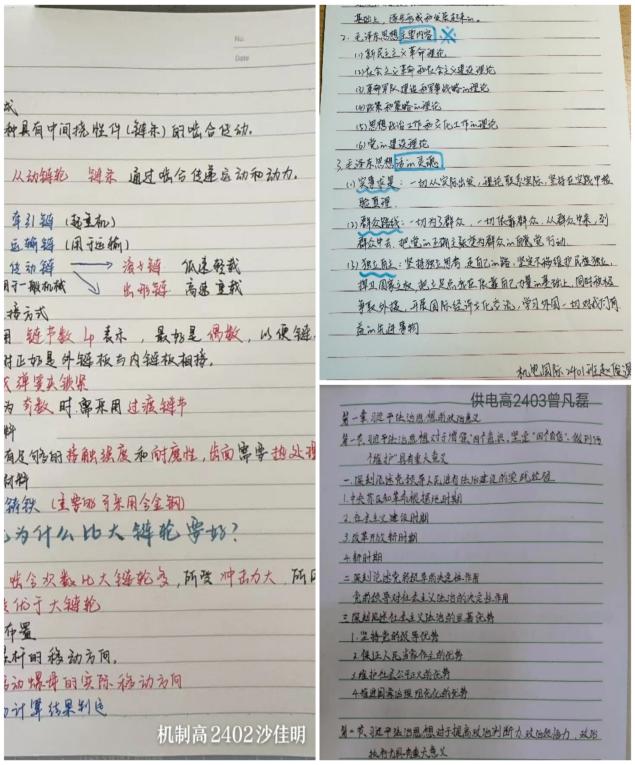 No.
Date
成
种具有中间挠性件(链条)的啮合传动.
从动链轮 链条 通过啮合传递运动和动力.
牵引链 (起重机)
运输链 (用于运输)
传动链 → 滚子链 低速轻载
用于一般机械 → 齿形链 高速重载
接方式
用 链节数 Lp 表示, 最好是 偶数, 以便链
时正好是外链板与内链板相接.
或弹簧夹锁紧
为 奇数 时需采用 过渡链节
料
有足够的接触强度和耐磨性,齿面需要热处理
材料
铸铁 (主要的可采用合金钢)
为什么比大链轮要好?
啮合次数比大链轮多, 所受 冲击力大, 所
优于大链轮
布置
丝杆的移动方向.
移动螺母的实际移动方向
计算结果判定
机制高2402沙佳明
基础上, 逐步形成和发展起来的.
2. 毛泽东思想主要内容: ※
(1) 新民主主义革命理论
(2) 社会主义革命和社会主义建设理论
(3) 革命军队建设和军事战略的理论
(4) 政策和策略的理论
(5) 思想政治工作和文化工作的理论
(6) 党的建设理论
3. 毛泽东思想活的灵魂
(1) 实事求是: 一切从实际出发, 理论联系实际, 坚持在实践中检
验真理.
(2) 群众路线: 一切为了群众, 一切依靠群众, 从群众中来, 到
群众中去, 把党的正确主张变为群众的自觉行动.
(3) 独立自主: 坚持独立思考, 走自己的路, 坚定不移维护民族独立,
捍卫国家主权, 把立足点放在依靠自己力量的基础上, 同时积极
争取外援, 开展国际经济文化交流, 学习外国一切对我们有
益的先进事物
机电国际2401班赵
供电高2403曾凡磊
第一章 习近平法治思想的政治意义
第一节 习近平法治思想对于增强"四个意识"、坚定"四个自信"、做到"两
个维护"具有重大意义
一. 深刻论述党领导人民进行法治建设的实践历程
1. 中央苏区和革命根据地时期
2. 社会主义建设时期
3. 改革开放新时期
4. 新时期
二. 深刻论述党的领导的决定性作用
党的领导对社会主义法治的决定性作用
三. 深刻阐述社会主义法治的显著优势
1. 坚持党的领导优势
2. 保证人民当家作主的优势
3. 维护社会公平正义的优势
4. 推进国家治理现代化的优势
第二节 习近平法治思想对于提高政治判断力、政治领悟力、政治
执行力具有重大意义